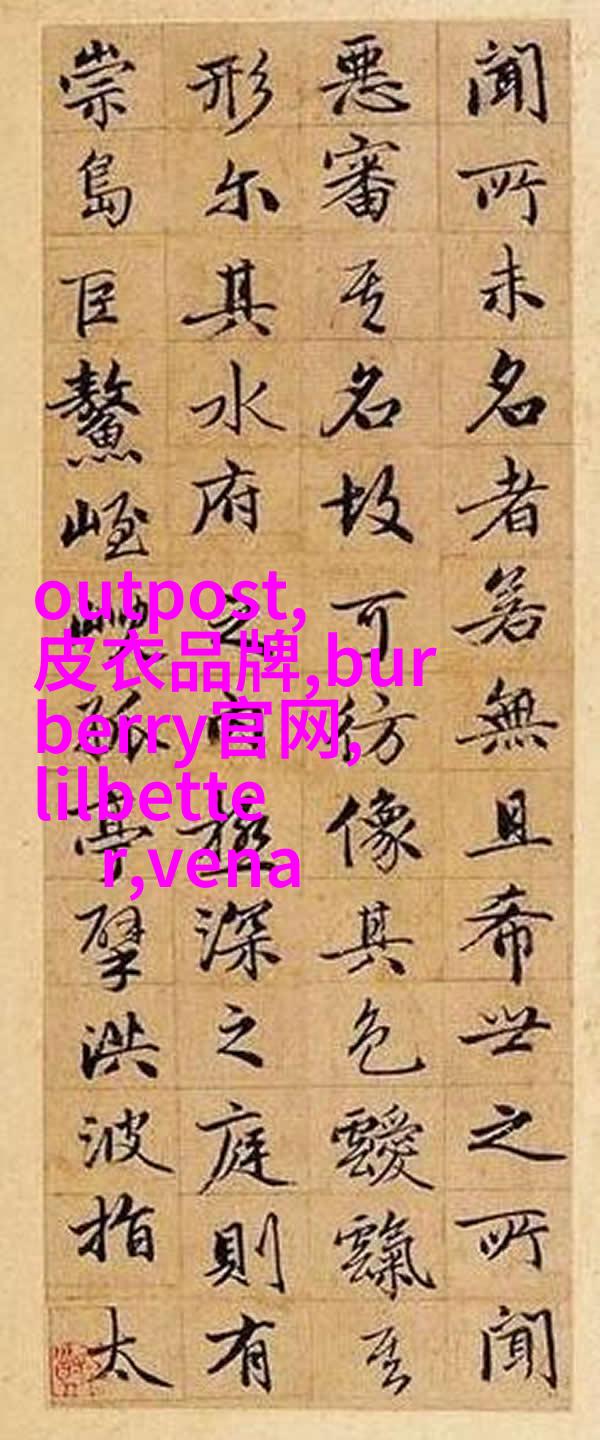 聞所未名者若無且希世之所聞
惡審其名故可彷像其色靉其
形尔其水府之極深之庭則有
崇島巨鰲峌孤亭擘洪波指太
outpost,
皮衣品牌,bur
berry官网,
lilbette
r,vena